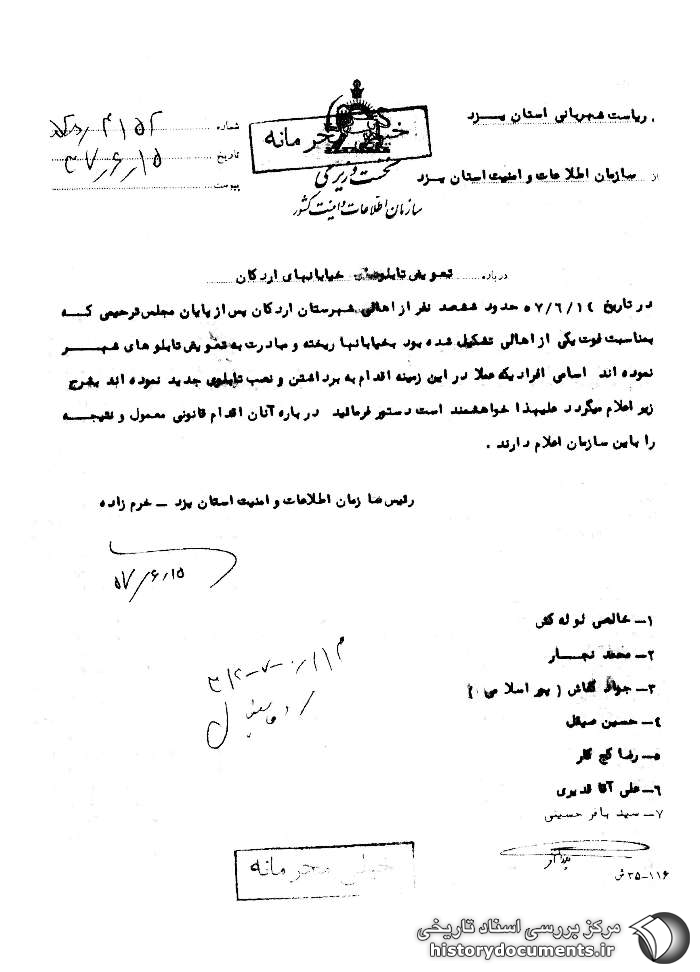 ریاست شهربانی استان یزد
شماره ۴۱۵۲
خیلی محرمانه
تاریخ ۳۷/۶/۱۵
نخست وزیری
از سازمان اطلاعات و امنیت استان یزد
پیوست
سازمان اطلاعات و امنیت کشور
درباره تعویض تابلوهای خیابانهای اردکان
در تاریخ ۵۷/۶/۱۴ حدود ششصد نفر از اهالی شهرستان اردکان پس از پایان مجلس ترحیمی که
بمناسبت فوت یکی از اهالی تشکیل شده بود بخیابانها ریخته و مبادرت به تعویض تابلو های شهر
نموده اند اسامی افرادیکه عملا در این زمینه اقدام به برداشتن و نصب تابلوی جدید نموده اند بشرح
زیر اعلام میگردد علیهذا خواهشمند است دستور فرمائید درباره آنان اقدام قانونی معمول و نتیجه
را باین سازمان اعلام دارند .
رئیس سازمان اطلاعات و امنیت استان یزد – خرم زاده
۵۷/۶/۱۵
۱– خالصی لوله کش
۲– محمد نجار
۳– جواد نقاش ( پور اسلامی )
۴– حسین
۵– رضا گچ کار
۶– علی آقا قدیری
۷– سید باقر حسینی
۱۱۶–۳۵ ش
خیلی محرمانه
مرکز بررسی اسناد تاریخی
historydocuments.ir